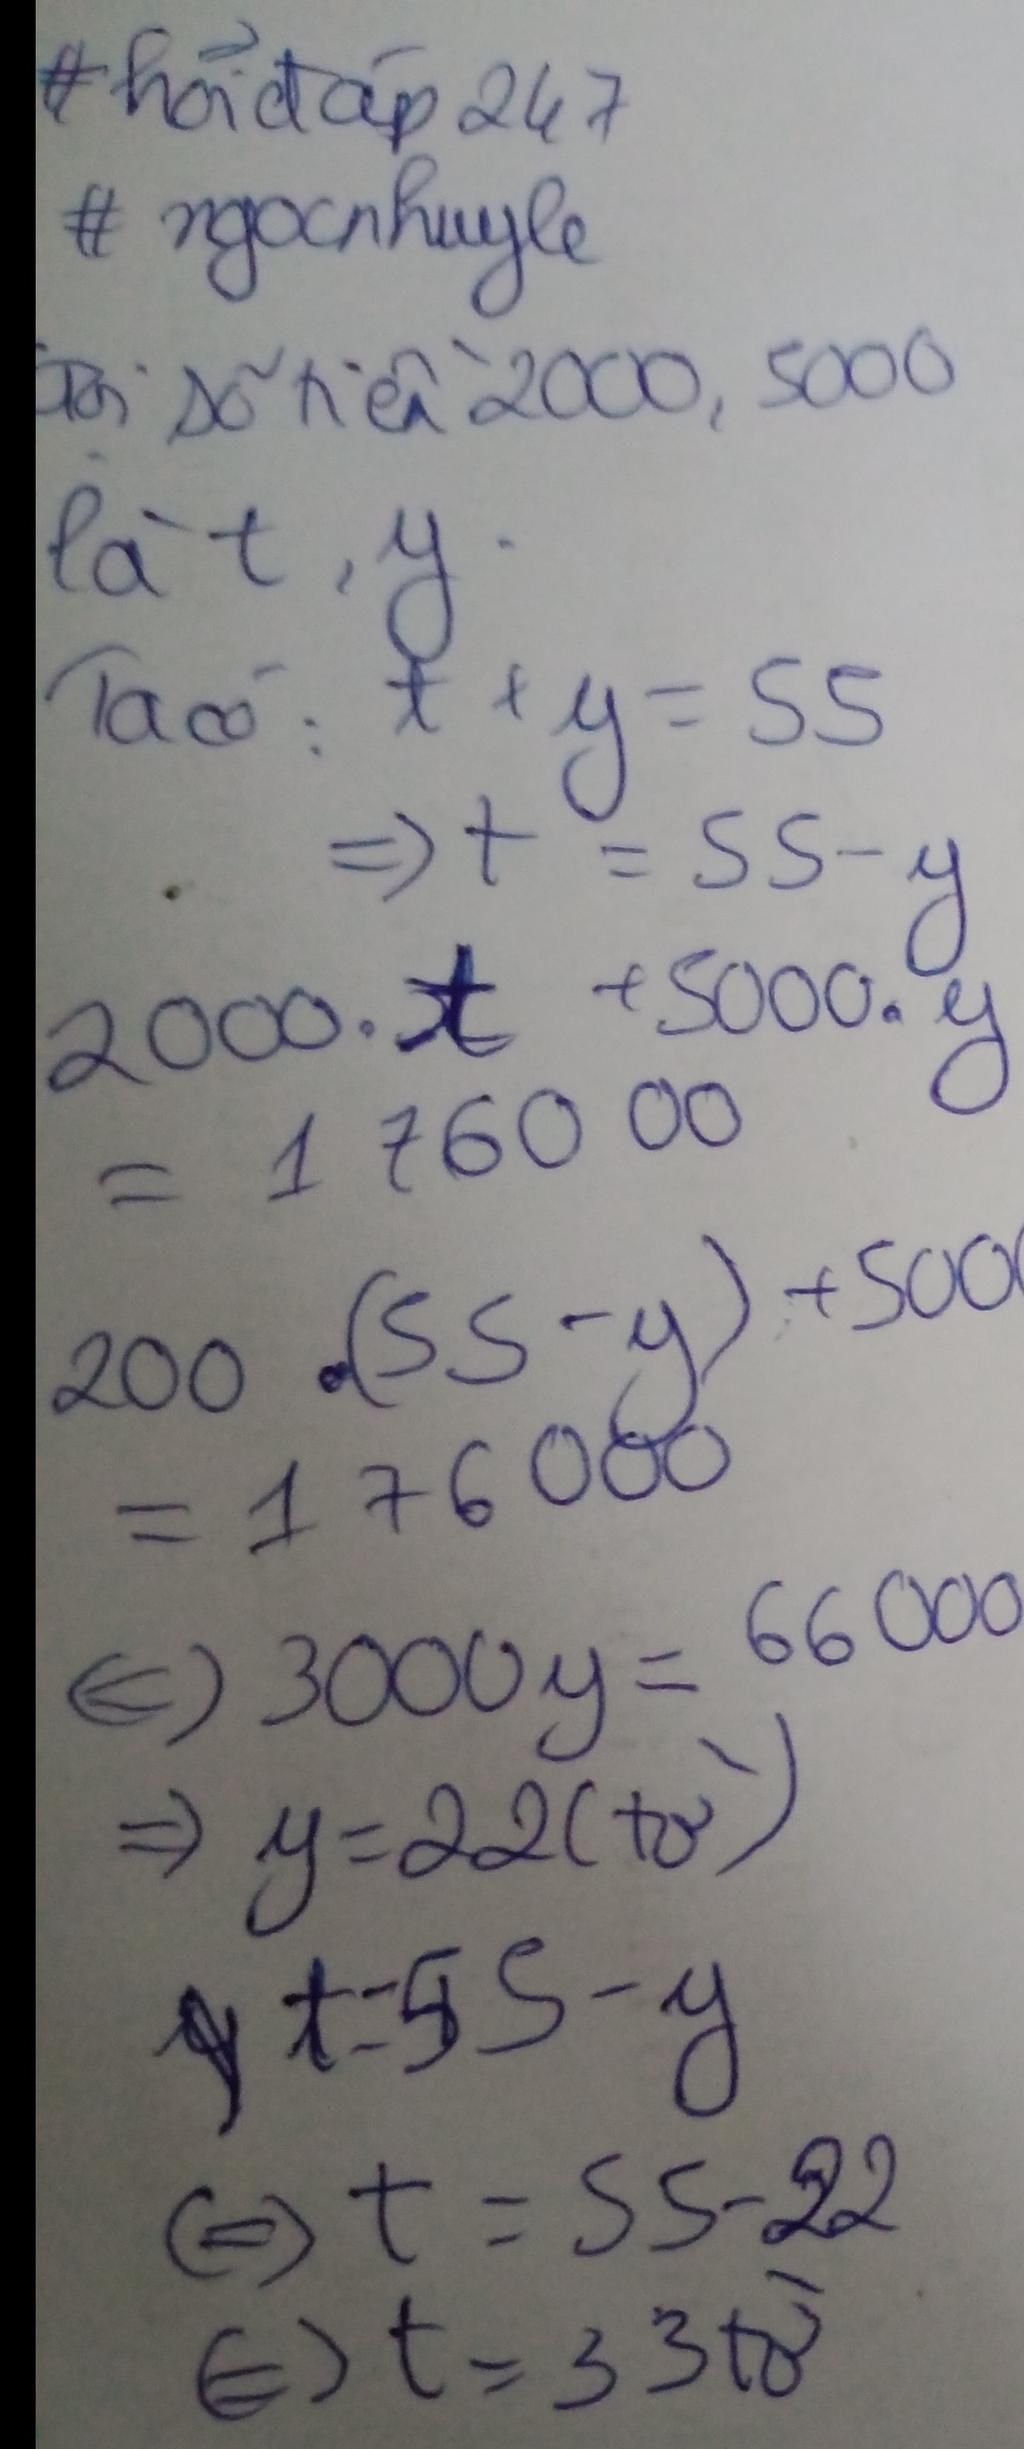 #hỏiđáp247
# ngocnhuyle
Gọi số tiền 2000, 5000
là t, y.
Ta có: t + y = 55
=> t = 55 - y
2000.t + 5000.y
= 176000
200 .(55 - y) + 500
= 176000
<=> 3000y = 66000
=> y = 22 (tờ)
t = 55 - y
<=> t = 55 - 22
<=> t = 33 tờ